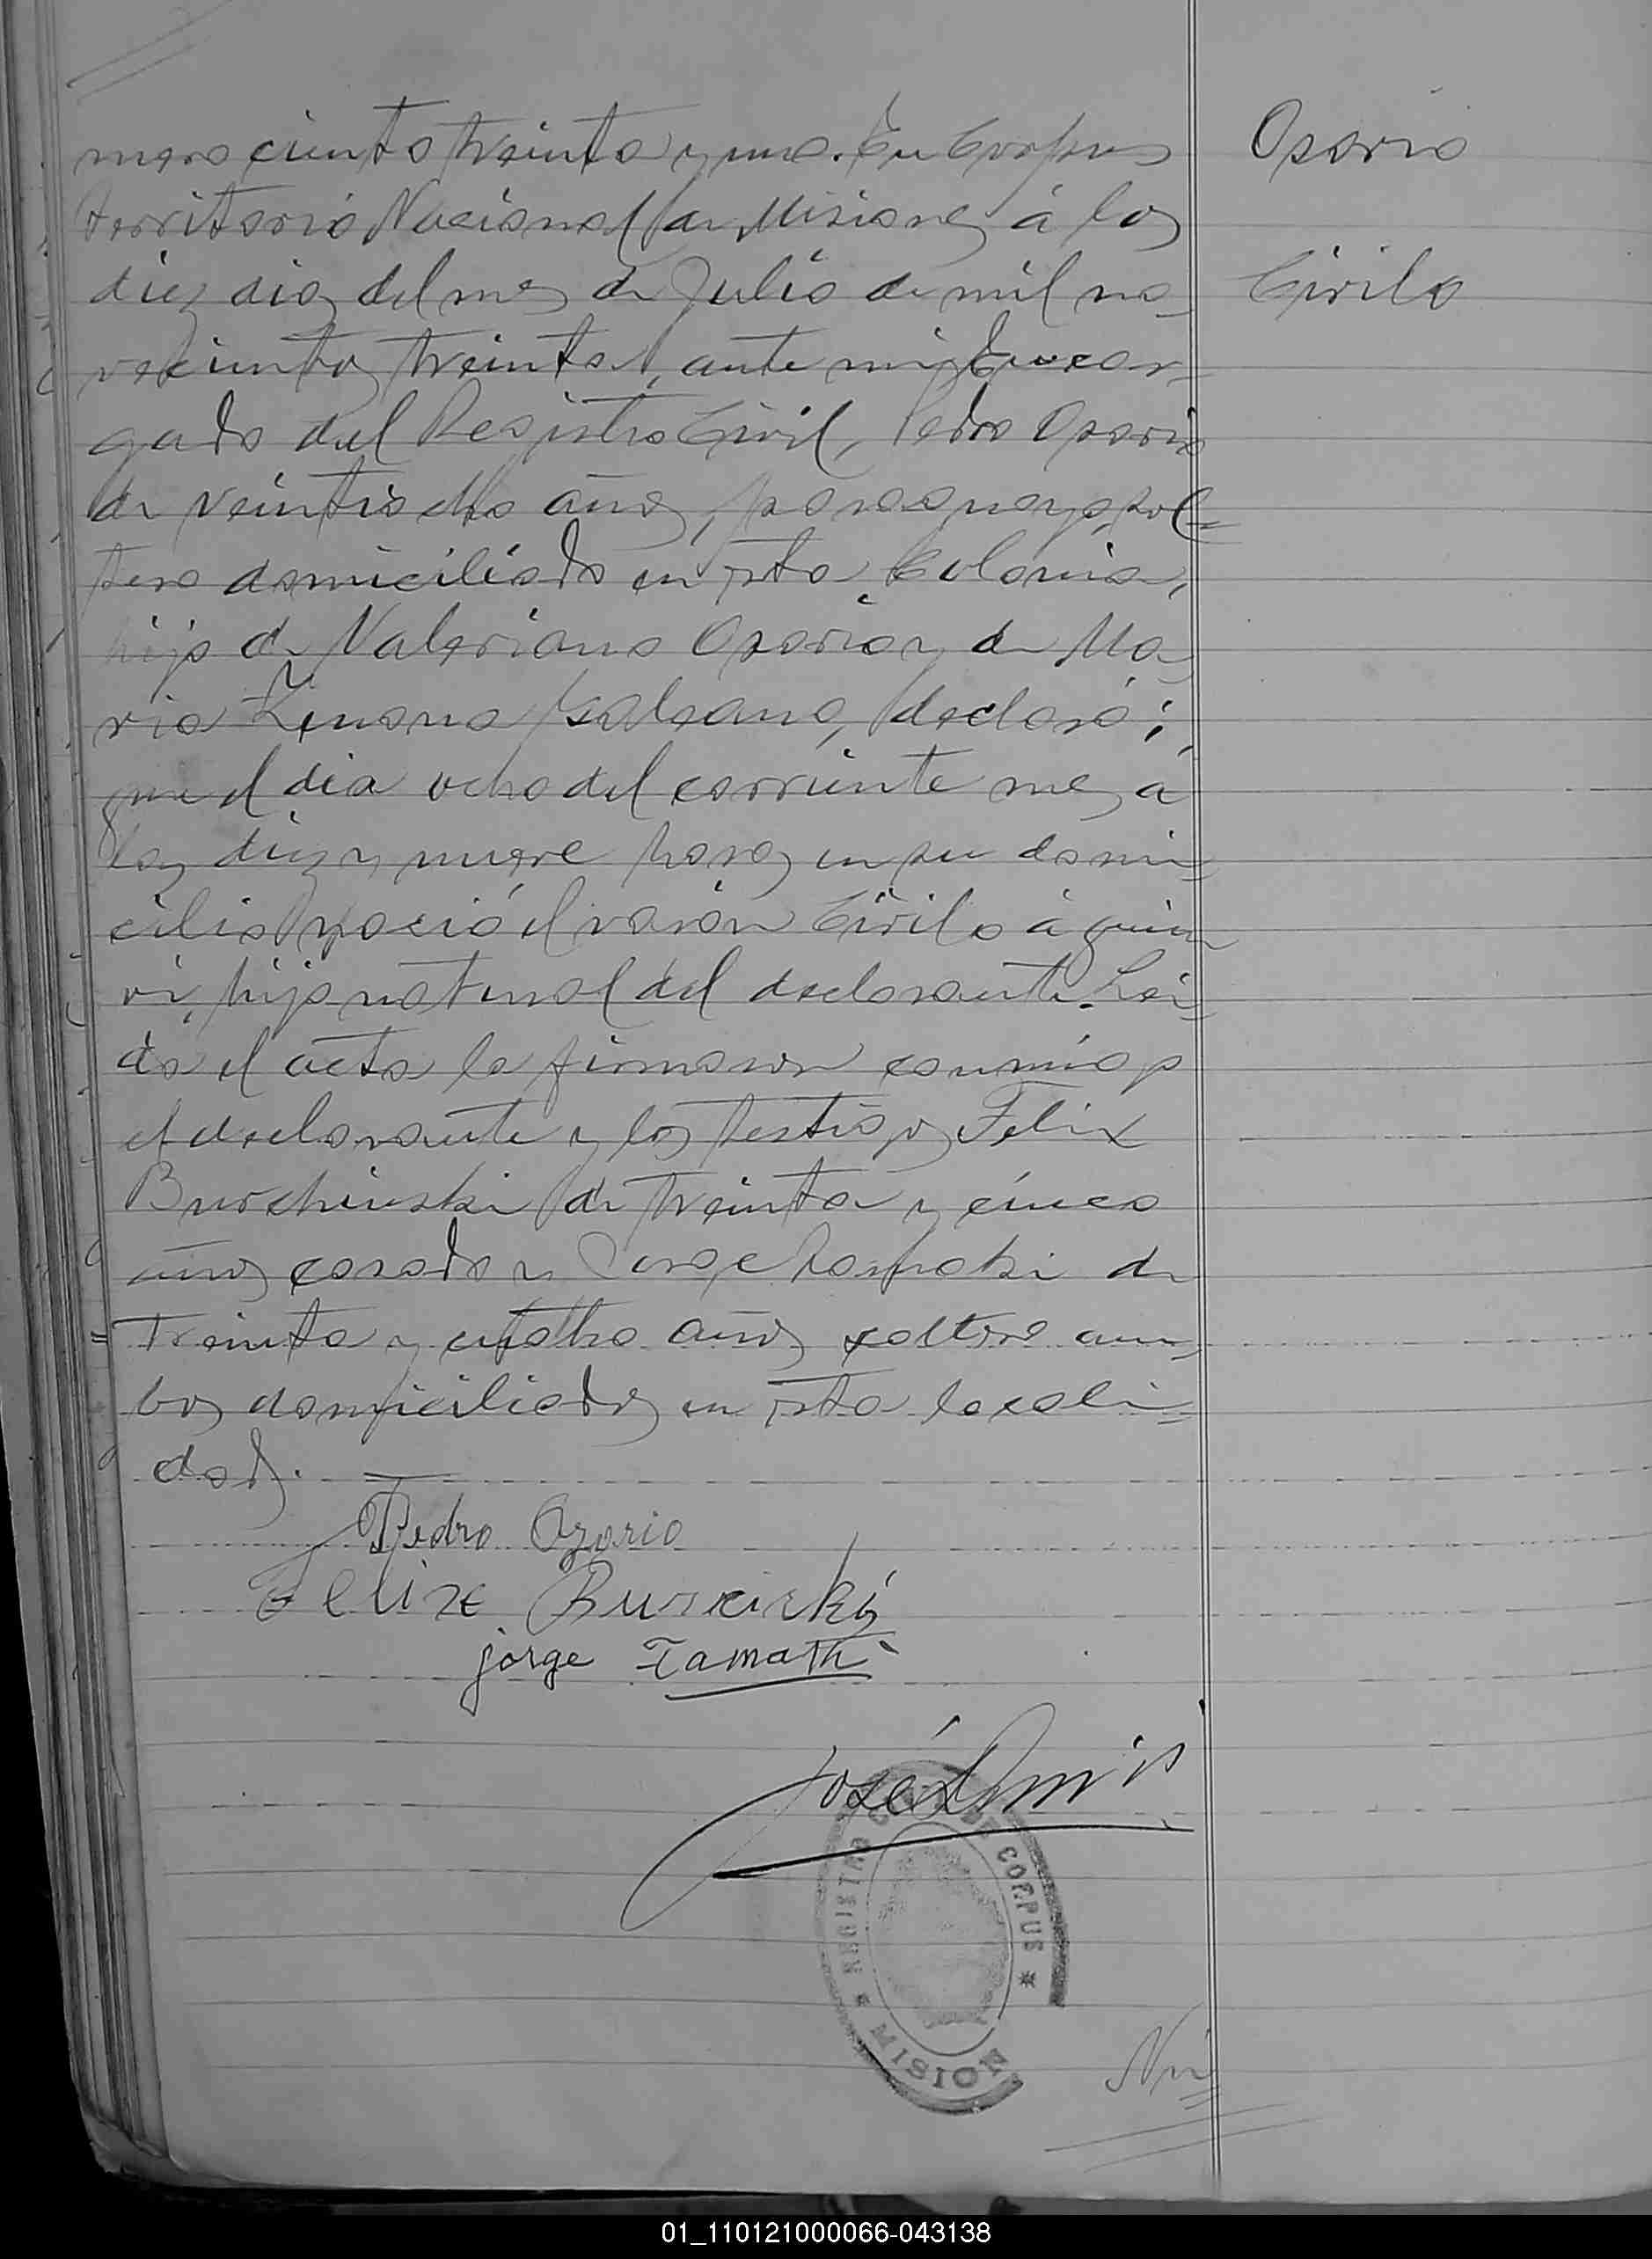 mero ciento treinta y uno. En Corpus
Territorio Nacional de Misiones á los
diez dias del mes de Julio de mil no-
vecientos treinta, ante mi Encar-
gado del Registro Civil, Pedro Osorio
de veintiocho años, paraguayo, sol-
tero domiciliado en esta Colonia,
hijo de Valeriano Osorio y de Ma
ria Zenona Galeano, declaró:
que el dia ocho del corriente mes á
las diez y nueve horas en su domi-
cilio nació el varon Cirilo á quien
vi, hijo natural del declarante. Lei-
da el acta la firmaron conmigo
el declarante y los testigos Felix
Burchinski de treinta y cinco
años casado y Jorge de
treinta y cuatro años soltero am-
bos domiciliados en esta locali-
dad.
Pedro Ozorio
Felix
jorge
José
REGISTRO CIVIL DE CORPUS * MISION
Nú=
Osorio
Cirilo
01_110121000066-043138